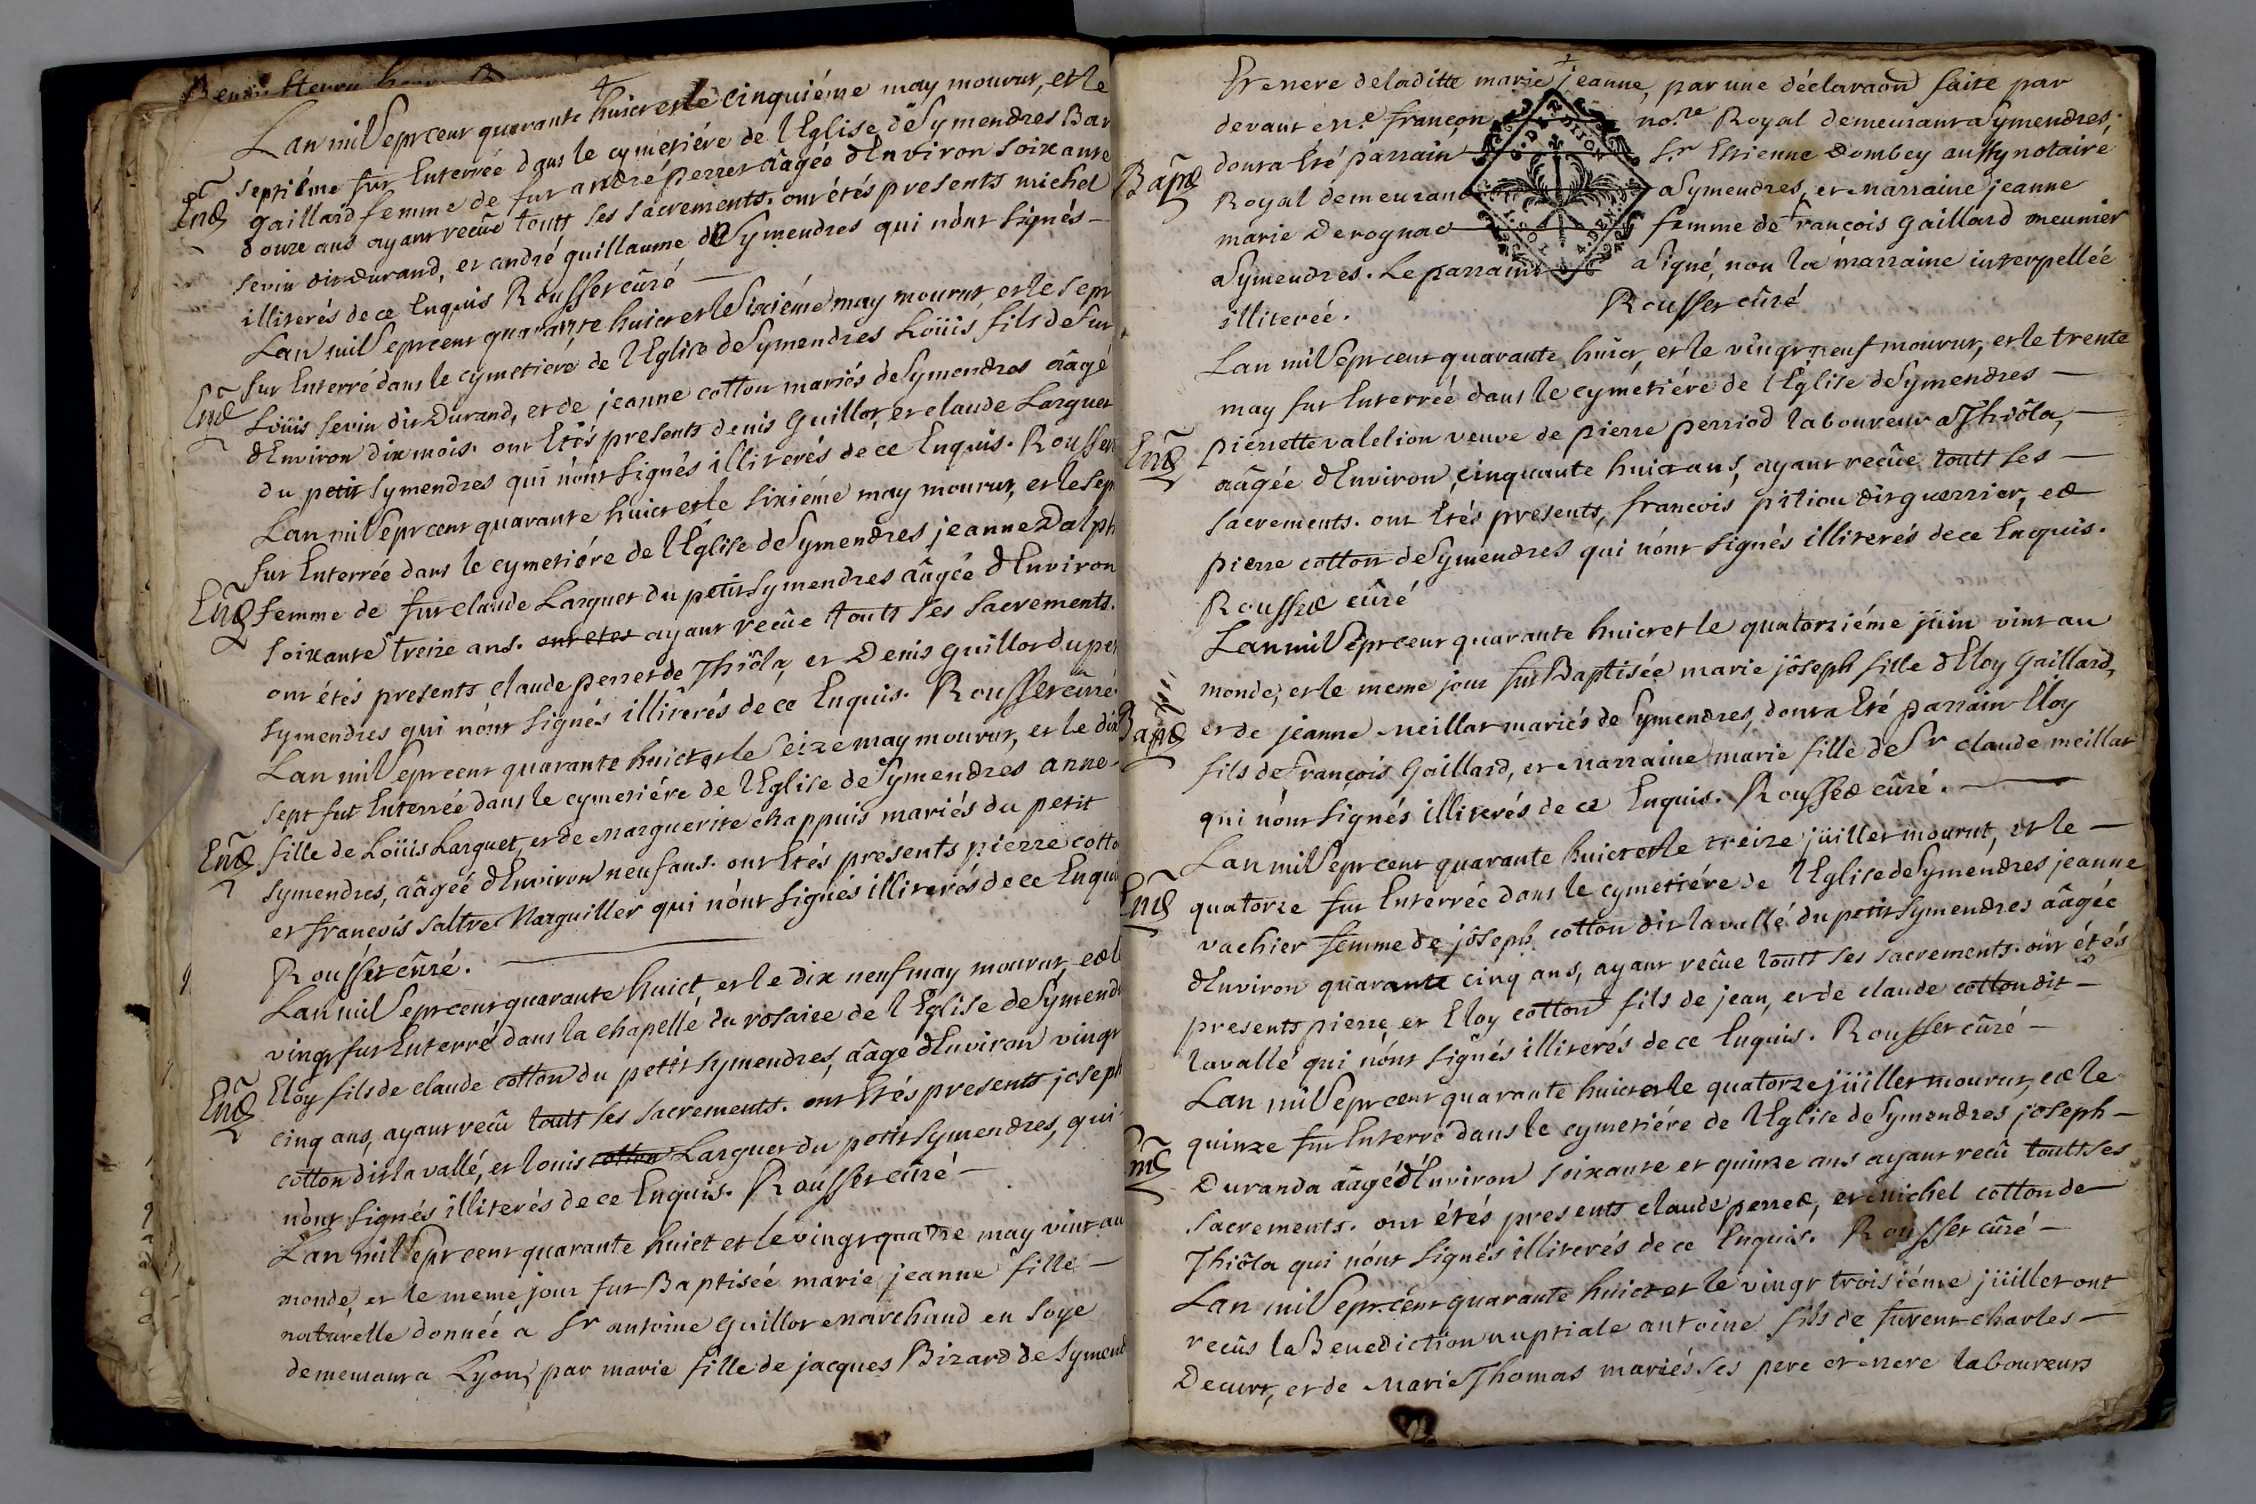 Lan mil Sept cent quarante huict et le cinquiéme may mourut, et le
septiéme fut Enterrée dans le cymetiére de l'Eglise de Symendres Bar
Ent gaillard femme de fut andré perret âagée d'Environ soixante
douze ans ayant recûe toutt ses sacrements. ont étés presents michel
sevin dit durand, et andré guillaume de Symendres qui n'ont signés —
illiterés de ce Enquis Rousset cûré —
Lan mil Sept cent quarante huict et le Sixiéme may mourut, et le sept
fut Enterré dans le cymetiére de l'Eglise de Symendres Loüis fils de fut
Ent Loüis sevin dit Durand, et de jeanne cotton mariés de Symendres âagé
d'Environ dix mois. ont Etés presents denis Guillot, et claude Larguet
du petit symendres qui n'ont signés illiterés de ce Enquis. Rousset
Lan mil Sept cent quarante huict et le sixiéme may mourut, et le sep
fut Enterrée dans le cymetiére de l'Eglise de Symendres jeanne Dalph
Ent femme de fut claude Larguet du petit symendres âagée d'Environ
soixante treize ans. ont etes ayant recûe toutt ses sacrements.
ont étés presents claude perret de Thiôla, et Denis guillot du pet
symendres qui n'ont signés illiterés de ce Enquis. Rousset cûré
Lan mil Sept cent quarante huict et le Seize may mourut, et le dix
sept fut Enterrée dans le cymetiére de l'Eglise de Symendres anne
Ent fille de Loüis Larguet, et de marguerite chappuis mariés du petit
symendres, âagéé d'Environ neuf ans. ont Etés presents pierre cotto
et francois saltre Marguiller qui n'ont signés illiterés de ce Enqui
Rousset cûré. —
Lan mil Sept cent quarante huict, et le dix neuf may mourut, et l
vingt fut Enterré dans la chapelle du rosaire de l'Eglise de Symend
Ent Eloy fils de claude cotton du petit symendres, âagé d'Environ vingt
cinq ans, ayant recû toutt ses sacrements. ont Etés presents joseph
cotton dit la vallé, et louis cotton Larguet du petit symendres, qui
n'ont signés illiterés de ce Enquis. Rousset cûré —
Lan mil Sept cent quarante huict et le vingt quatre may vint au
monde, et le meme jour fut Baptisée marie jeanne fille —
naturelle donnée a Sr antoine Guillot marchand en soye
demeurant a Lyon, par marie fille de jacques Bizard de Symend
Et mere de laditte marie jeanne, par une déclaraõn faite par
devant én.e françon no.re Royal demeurant a Symendres,
Bapt dont a Eté parrain S.r Etienne Dombey aussy notaire
Royal demeurant a Symendres, et marraine jeanne
marie Derognat femme de françois Gaillard meunier
a Symendres. Le parrain a signé, non la marraine interpellée
illiterée. Rousset cûré
G. DE DIJON
1. SOL 4. DEN.
Lan mil Sept cent quarante huict, et le vingt neuf mourut, et le trente
may fut Enterrée dans le cymétiére de l'Église de Symendres —
Ent pierrette valelion veuve de pierre perriod laboureur a Thiôla, —
âagée d'Environ cinquante huict ans, ayant recûe toutt ses —
sacrements. ont Etés presents, francois pition dit guerrier, et
pierre cotton de Symendres qui n'ont signés illiterés de ce Enquis.
Rousset cûré
Lan mil Sept cent quarante huict et le quatorziéme jüin vint au
monde, et le meme jour fut Baptisée marie jôseph fille d'Eloy Gaillard,
Bapt et de jeanne meillat mariés de Symendres, dont a Eté parrain Eloy
fils de françois Gaillard, et marraine marie fille de Sr claude meillat
qui n'ont signés illiterés de ce Enquis. Rousset cûré. —
Lan mil Sept cent quarante huict et le treize jüillet mourut, et le —
Ent quatorze fut Enterrée dans le cymetiére de l'Eglise de Symendres jeanne
vachier femme de jôseph cotton dit la vallé du petit symendres âagée
d'Environ quarante cinq ans, ayant recûe toutt ses sacrements. ont étés
presents pierre, et Eloy cotton fils de jean, et de claude cotton dit —
lavallé qui n'ont signés illiterés de ce Enquis. Rousset cûré —
Lan mil Sept cent quarante huict et le quatorze jüillet mourut, et le
quinze fut Enterré dans le cymetiére de l'Eglise de Symendres, joseph —
Ent Duranda âagé d'Environ soixante et quinze ans ayant recû toutt ses
sacrements. ont étés presents claude perret, et michel cotton de
Thiôla qui n'ont signés illiterés de ce Enquis. Rousset cûré —
Lan mil Sept cent quarante huict et le vingt troisiéme jüillet ont
recûs la Benediction nuptiale antoine fils de furent charles —
Decurt, et de Marie Thomas mariés ses pere et mere laboureurs